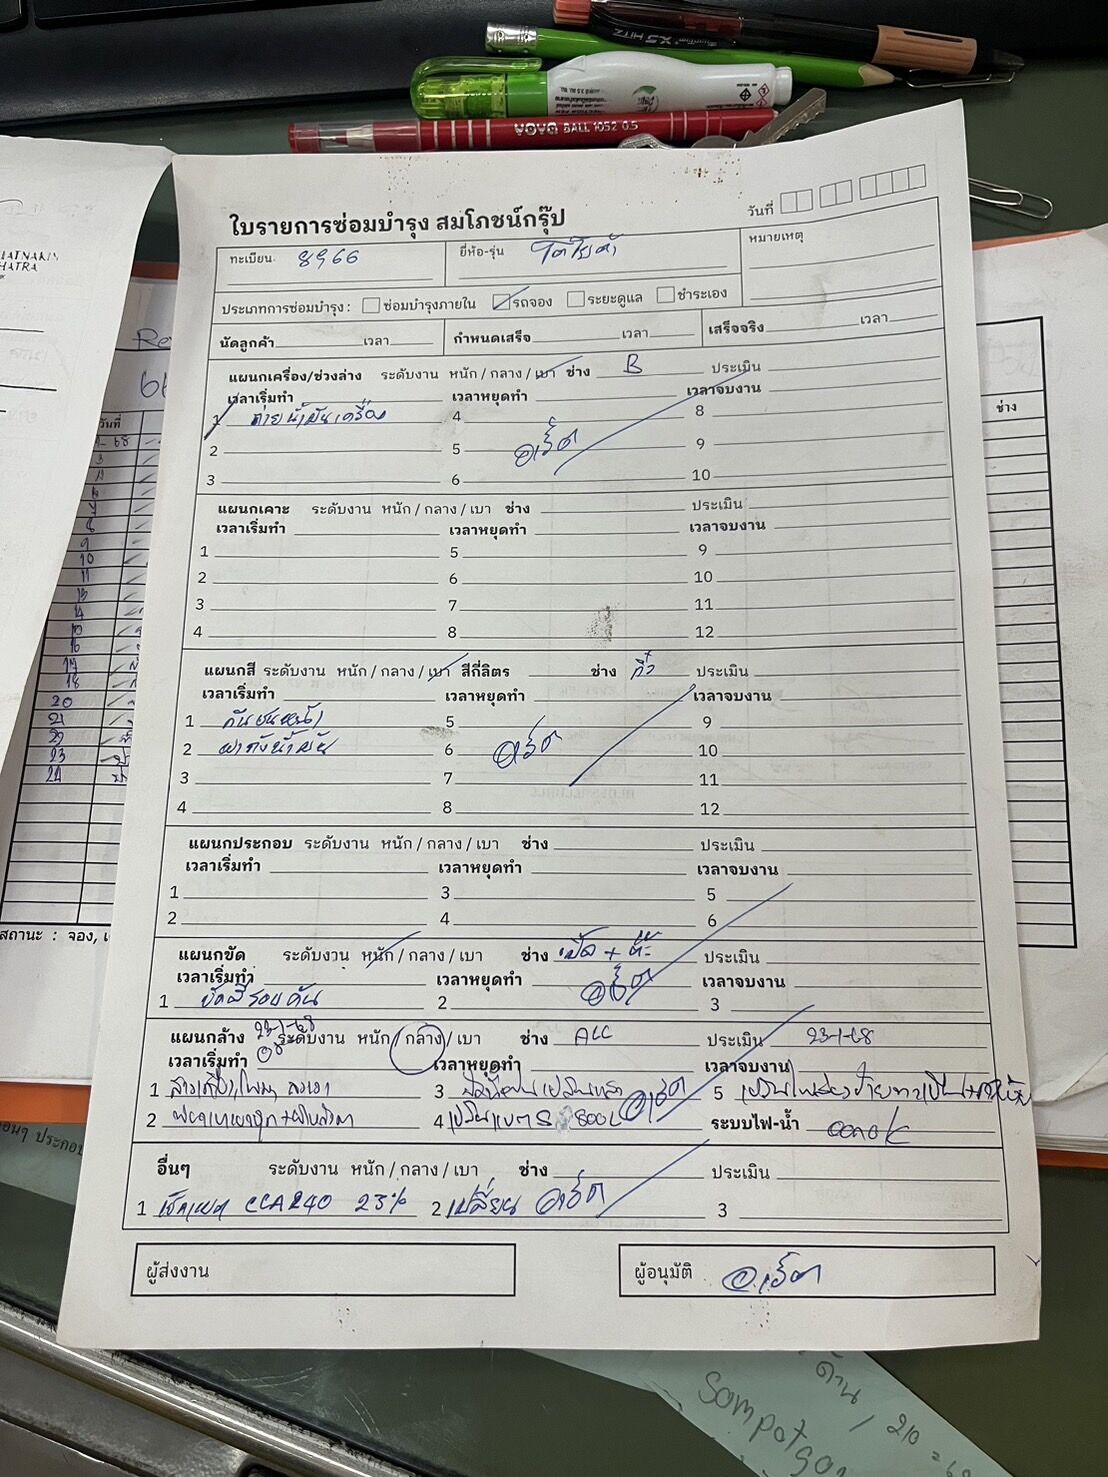 X5 HITZ
YOYA BALL 1052 0.5
ใบรายการซ่อมบำรุง สมโภชน์กรุ๊ป
วันที่
ทะเบียน 8966 ยี่ห้อ-รุ่น โตโยต้า หมายเหตุ
ประเภทการซ่อมบำรุง : ซ่อมบำรุงภายใน รถจอง ระยะดูแล ชำระเอง
นัดลูกค้า เวลา กำหนดเสร็จ เวลา เสร็จจริง เวลา
แผนกเครื่อง/ช่วงล่าง ระดับงาน หนัก / กลาง / เบา ช่าง B ประเมิน
เวลาเริ่มทำ เวลาหยุดทำ เวลาจบงาน
1 ถ่ายน้ำมันเครื่อง 4 8
2 5 9
3 6 10
แผนกเคาะ ระดับงาน หนัก / กลาง / เบา ช่าง ประเมิน
เวลาเริ่มทำ เวลาหยุดทำ เวลาจบงาน
1 5 9
2 6 10
3 7 11
4 8 12
แผนกสี ระดับงาน หนัก / กลาง / เบา สีกี่ลิตร ช่าง กิ๊ว ประเมิน
เวลาเริ่มทำ เวลาหยุดทำ เวลาจบงาน
1 กันชนหน้า 5 9
2 ฝาถังน้ำมัน 6 10
3 7 11
4 8 12
แผนกประกอบ ระดับงาน หนัก / กลาง / เบา ช่าง ประเมิน
เวลาเริ่มทำ เวลาหยุดทำ เวลาจบงาน
1 3 5
2 4 6
แผนกขัด ระดับงวน หนัก / กลาง / เบา ช่าง ประเมิน
เวลาเริ่มทำ เวลาหยุดทำ เวลาจบงาน
1 ขัดสีรอบคัน 2 3
แผนกล้าง 22-1-68 ระดับงาน หนัก / กลาง / เบา ช่าง ALL ประเมิน 23-1-68
เวลาเริ่มทำ 08 เวลาหยุดทำ เวลาจบงาน
1 3 5
2 4 800L ระบบไฟ-น้ำ
อื่นๆ ระดับงาน หนัก / กลาง / เบา ช่าง ประเมิน
1 เช็คแบต CCA240 23% 2 เปลี่ยน 3
ผู้ส่งงาน ผู้อนุมัติ
HATRA
วันที่
ช่าง
สถานะ : จอง,
ด้าน / 210